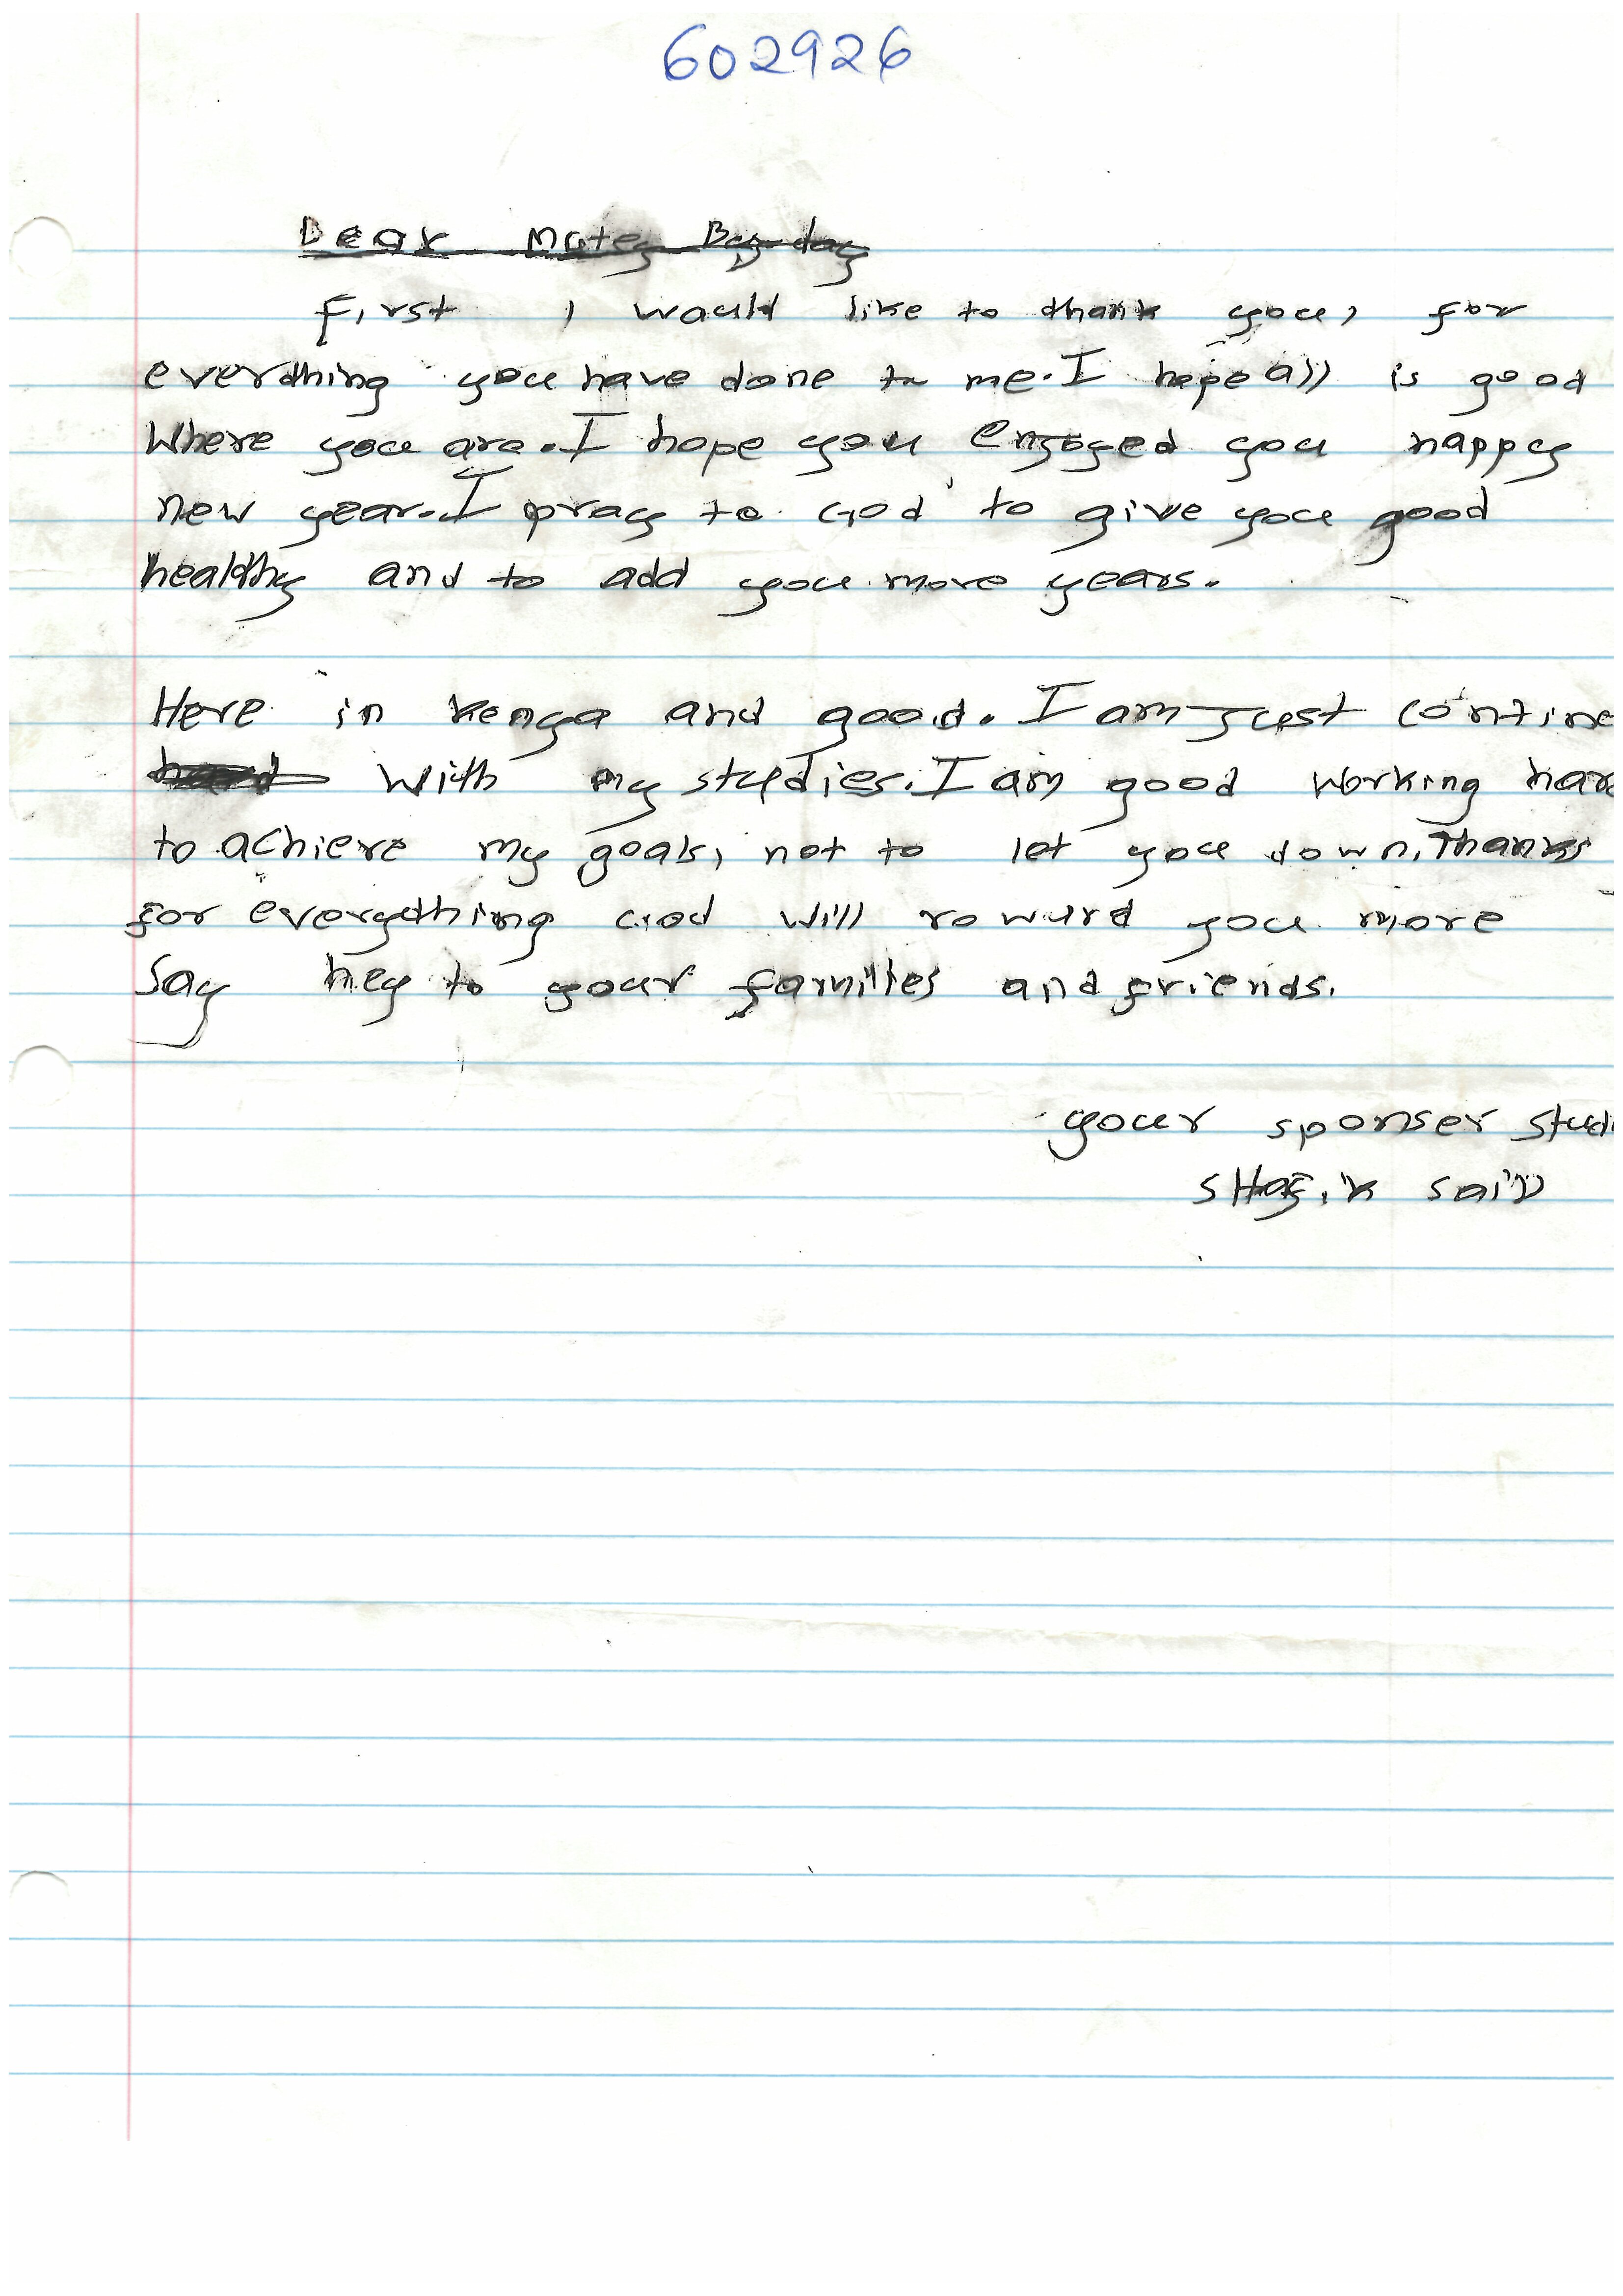 602926
Dear
First I would like to thank you, for
everdhing you have done to me. I hope all is good
Where you are. I hope you enjoyed you happy
new year. I pray to God to give you good
healthy and to add you more years.
Here in kenya and good. I am Just contine
with my studies. I am good working har
to achieve my goals, not to let you down. Thanks
for everything God will roward you more
Say hey to your families and friends.
your sponser stud
said